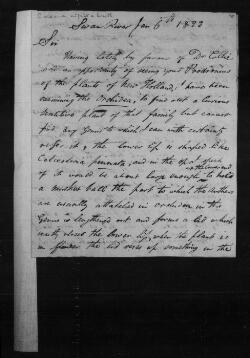 Swan River Jan 6th 1833
Sir
Having lately by favour of Dr Collie
had an opportunity of seeing your Prodromus
of the plants of New Holland, I have been
examining the Orchideae, to find out a curious
sensitive plant of this family but cannot
find any Genus to which I can with certainty
refer it, the lower lip is shaped like
Calceolaria pinnata, and in the
of it would be about large enough to hold
a musket ball the part to which the Anthers
are usually attached in orchideae in this
Genus is lengthened out and forms a lid which
nearly closes the lower lip, when the plant is
in flower the lid rises up something in the